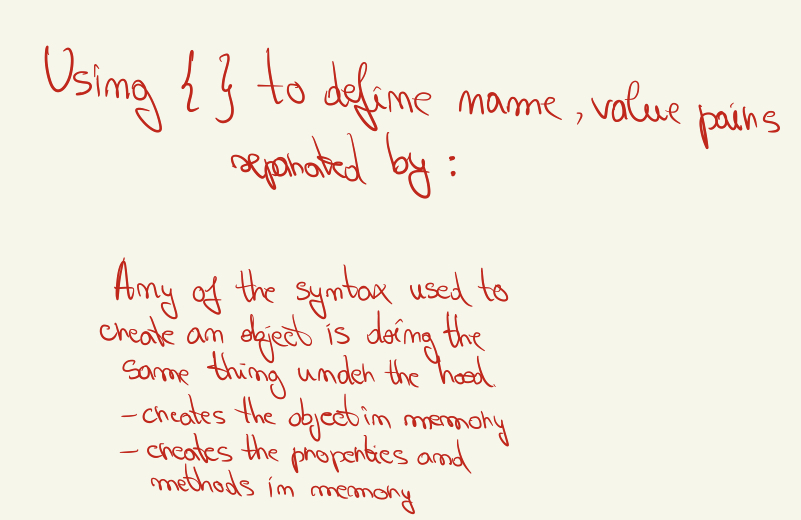 Using { } to define name, value pairs
separated by :
Any of the syntax used to
create an object is doing the
same thing under the hood
- creates the object in memory
- creates the properties and
methods in memory